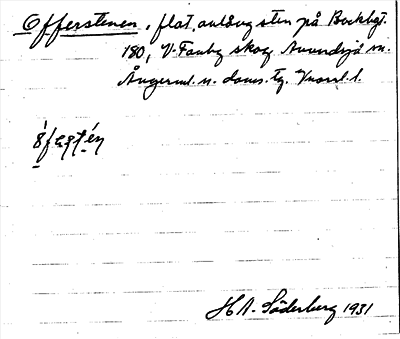 Offerstenen, flat, avlång sten på Bockhgt.
180, V-Tanby skog. Anundsjö sn.
Ångerml. n. doms. tg. Vnorrl. l.
H A. Söderberg 1931